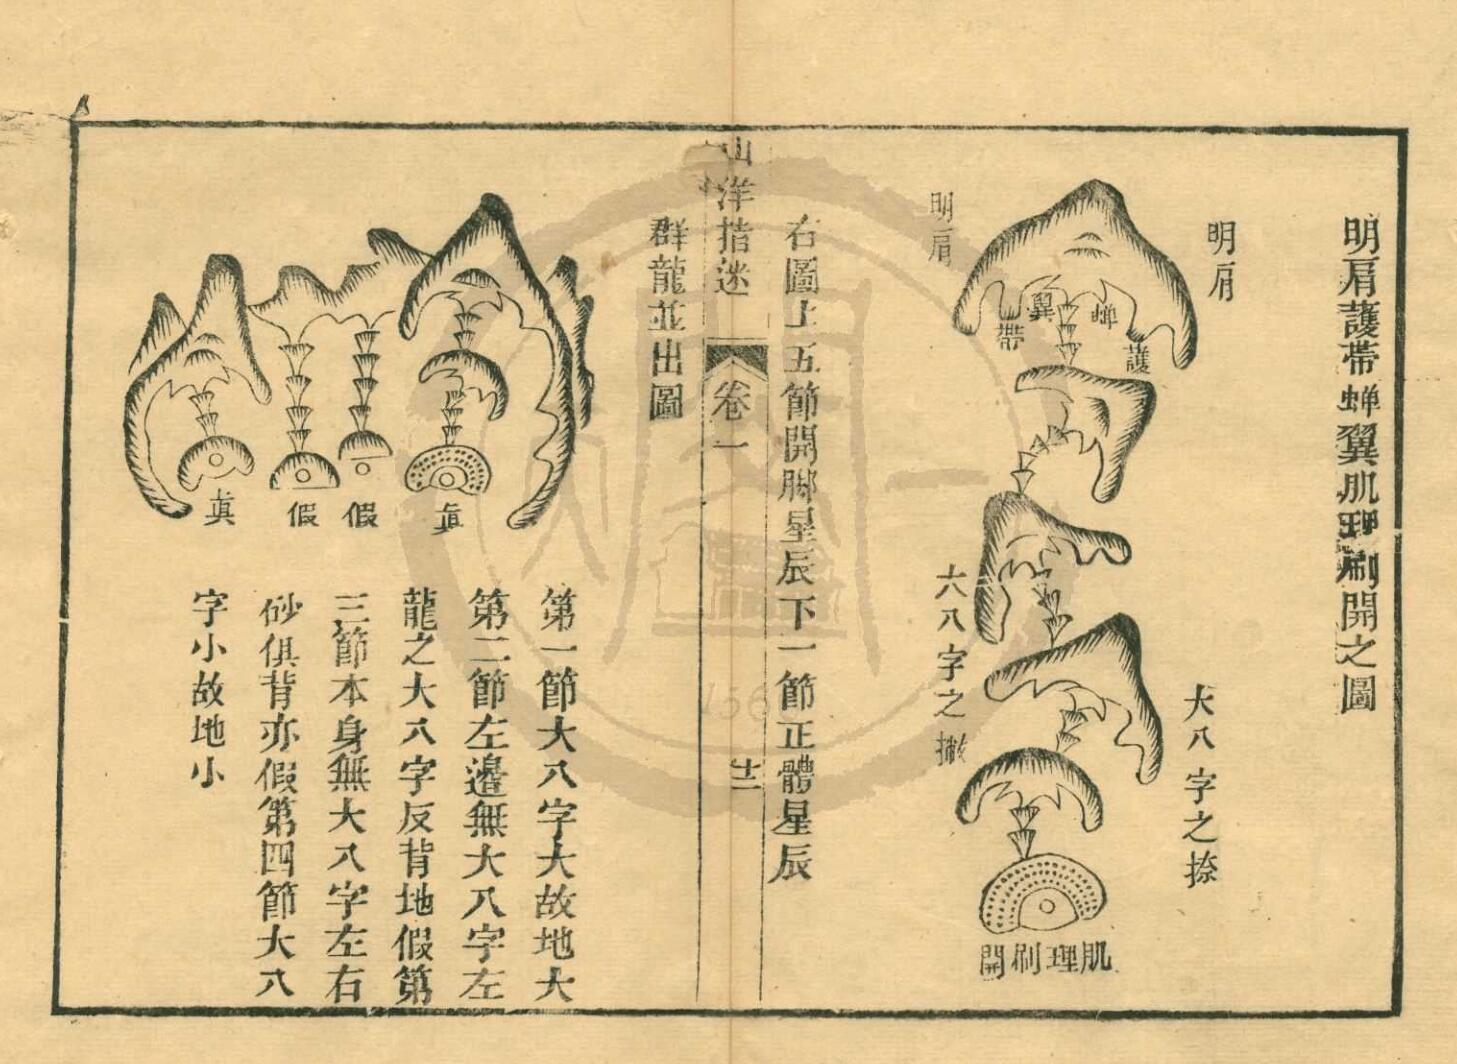 明肩護帶蟬翼肌理刷開之圖
明肩
明肩
蟬
翼
護
帶
大八字之捺
大八字之撇
肌理刷開
右圖上五節開脚星辰下一節正體星辰
山洋指迷
卷一
廿二
群龍並出圖
眞
假
假
眞
第一節大八字大故地大
第二節左邊無大八字左
龍之大八字反背地假第
三節本身無大八字左右
砂俱背亦假第四節大八
字小故地小